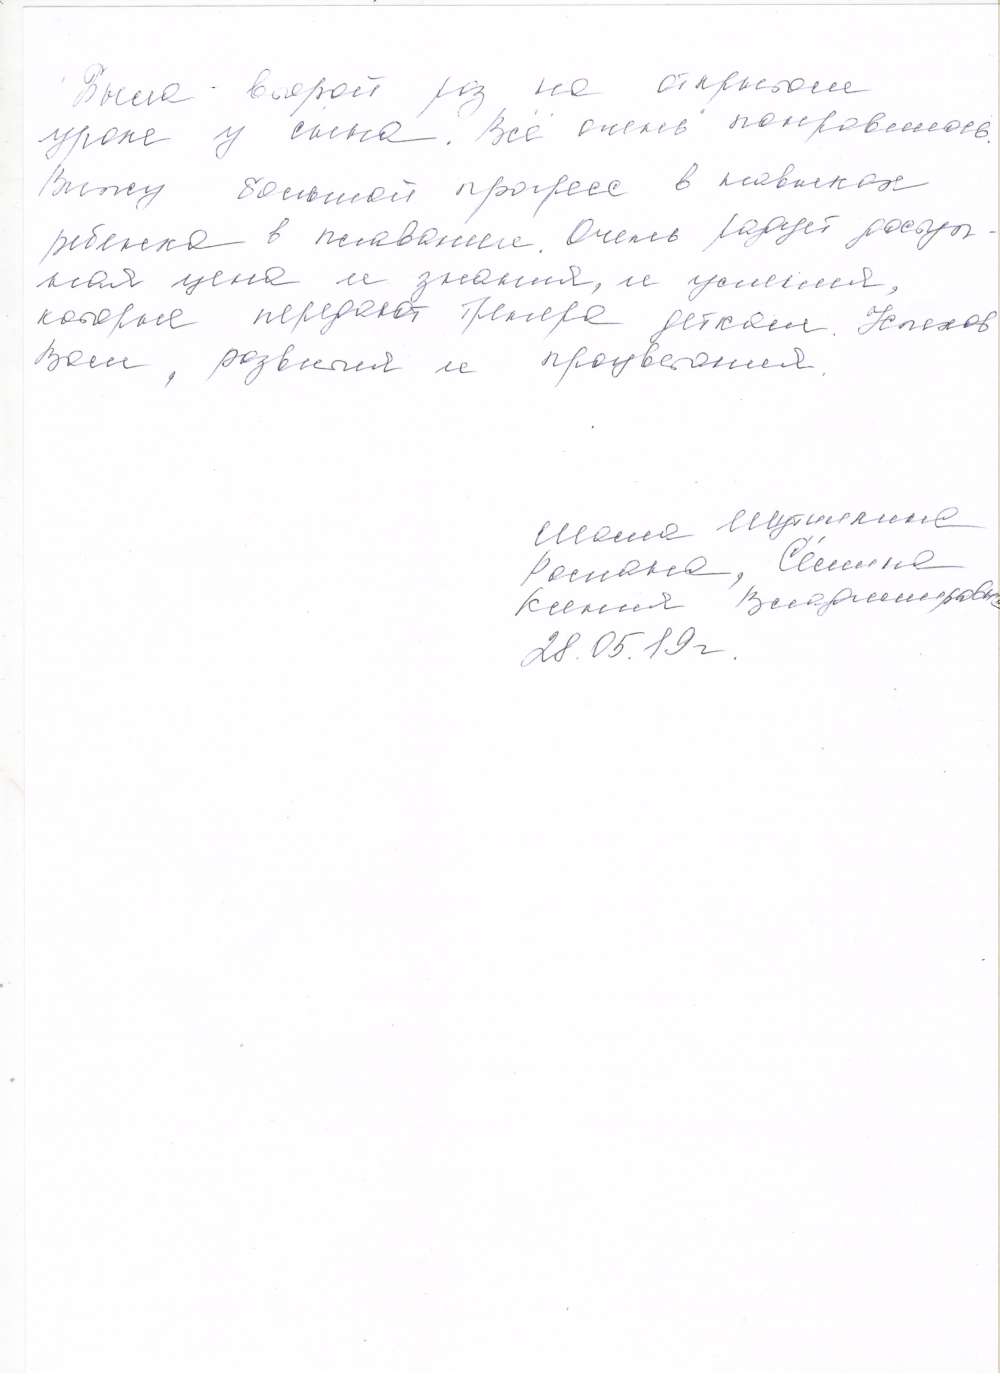 Была второй раз на открытом
уроке у сына. Всё очень понравилось.
Вижу большой прогресс в навыках
ребенка в плавании. Очень радует доступ-
ная цена и знания, и умения,
которые передают тренера деткам. Успехов
Вам, развития и процветания.
Мама
Романа, Сёмина
Ксения Владимировна
28.05.19г.